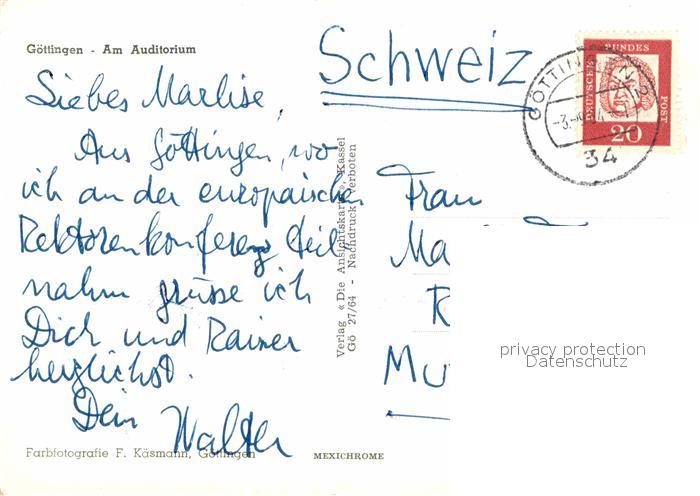 Göttingen - Am Auditorium
Schweiz
Liebes Marlise,
Aus Göttingen, wo
ich an der europäischen
Rektorenkonferenz teil
nahm grüsse ich
Dich und Rainer
herzlichst.
Dein Walter
Farbfotografie F. Käsmann, Göttingen
MEXICHROME
Verlag « Die Ansichtskarte », Kassel
Gö 27/64 - Nachdruck verboten
Frau
Ma
R
Mu
GÖTTINGEN
34
DEUTSCHE
BUNDES
POST
20
privacy protection
Datenschutz